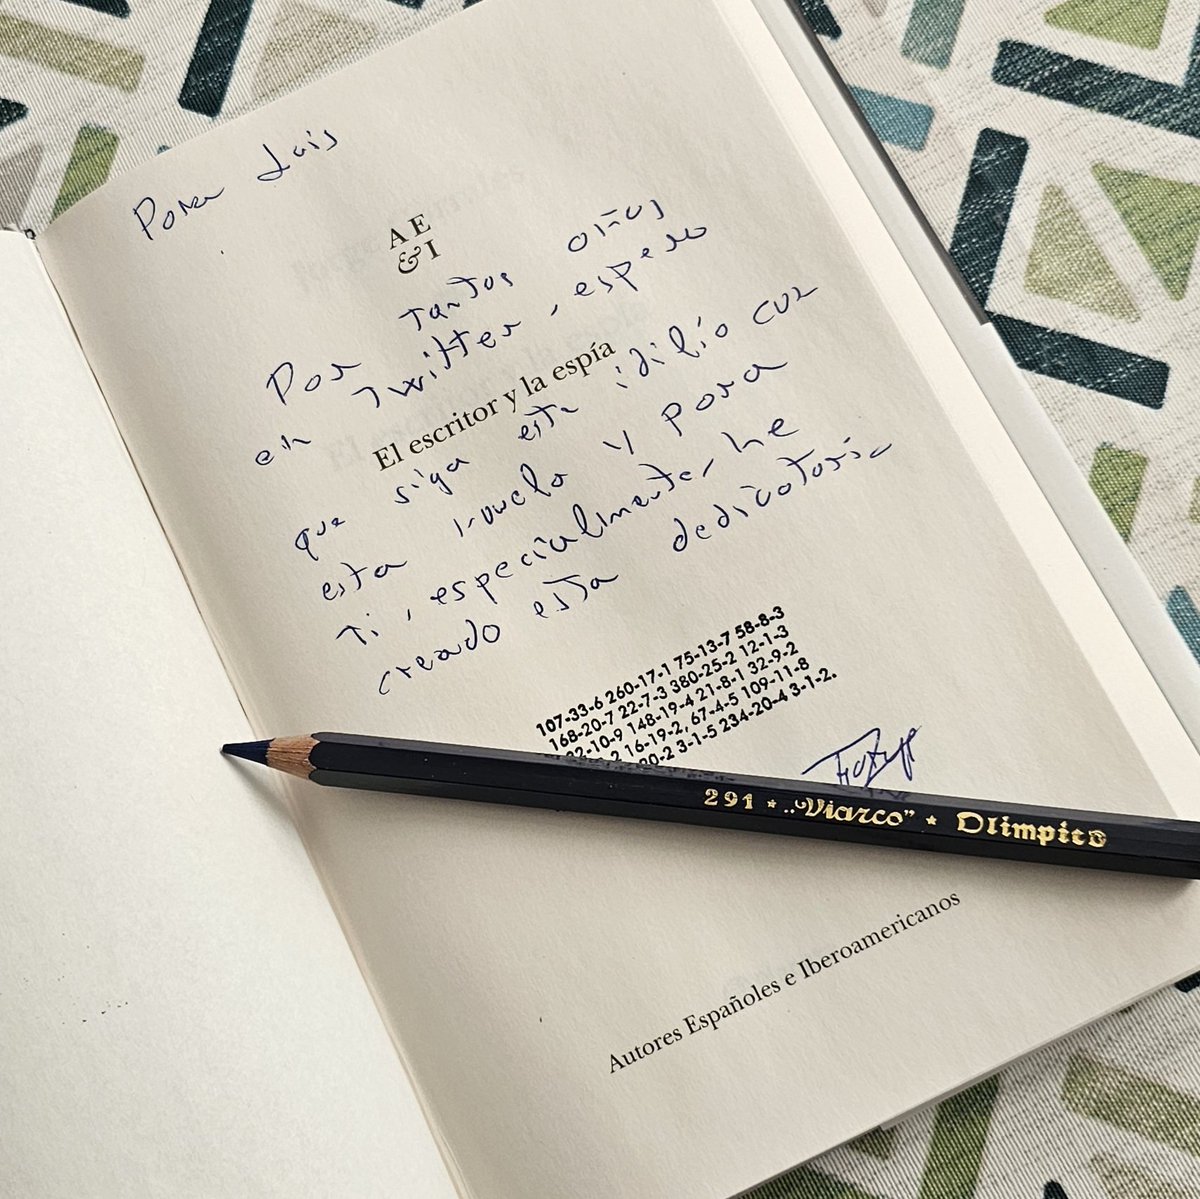 Para Luis
A E
& I
Por tantos años
en Twitter, espero
El escritor y la espía
que siga este idilio con
esta novela y para
ti, especialmente, he
creado esta dedicatoria
107-33-6 260-17-1 75-13-7 58-8-3
168-20-7 22-7-3 380-25-2 12-1-3
2-10-9 148-19-4 21-8-1 32-9-2
2 16-19-2, 67-4-5 109-11-8
20-2 3-1-5 234-20-4 3-1-2.
291 ★ „Viarco” ★ Olimpico
Autores Españoles e Iberoamericanos